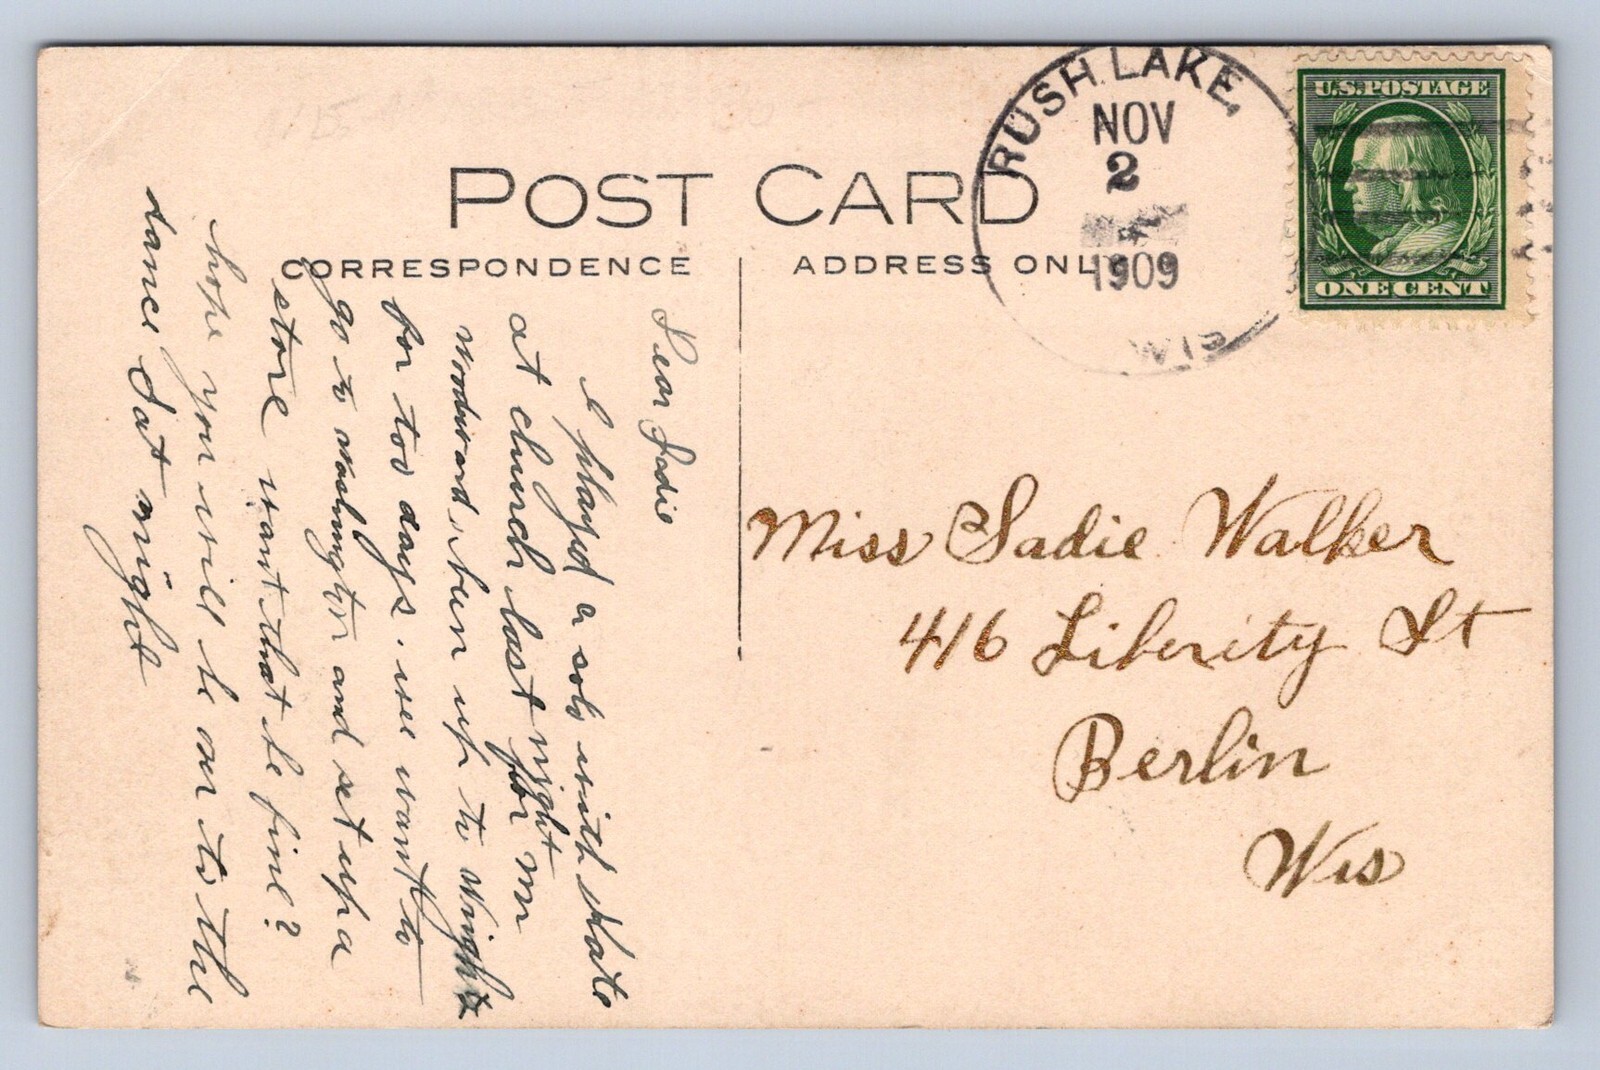 POST CARD
CORRESPONDENCE
ADDRESS ONLY
RUSH LAKE,
NOV
2
1909
WIS
U.S. POSTAGE
ONE CENT
Dear Sadie
I played a solo with
at church last night for mr
Woodward, bun up to Wright
for too days. wee want to
go to washington and set up a
store want that be fine?
hope you will be an to the
dance Sat night
Miss Sadie Walker
416 Liberity St
Berlin
Wis